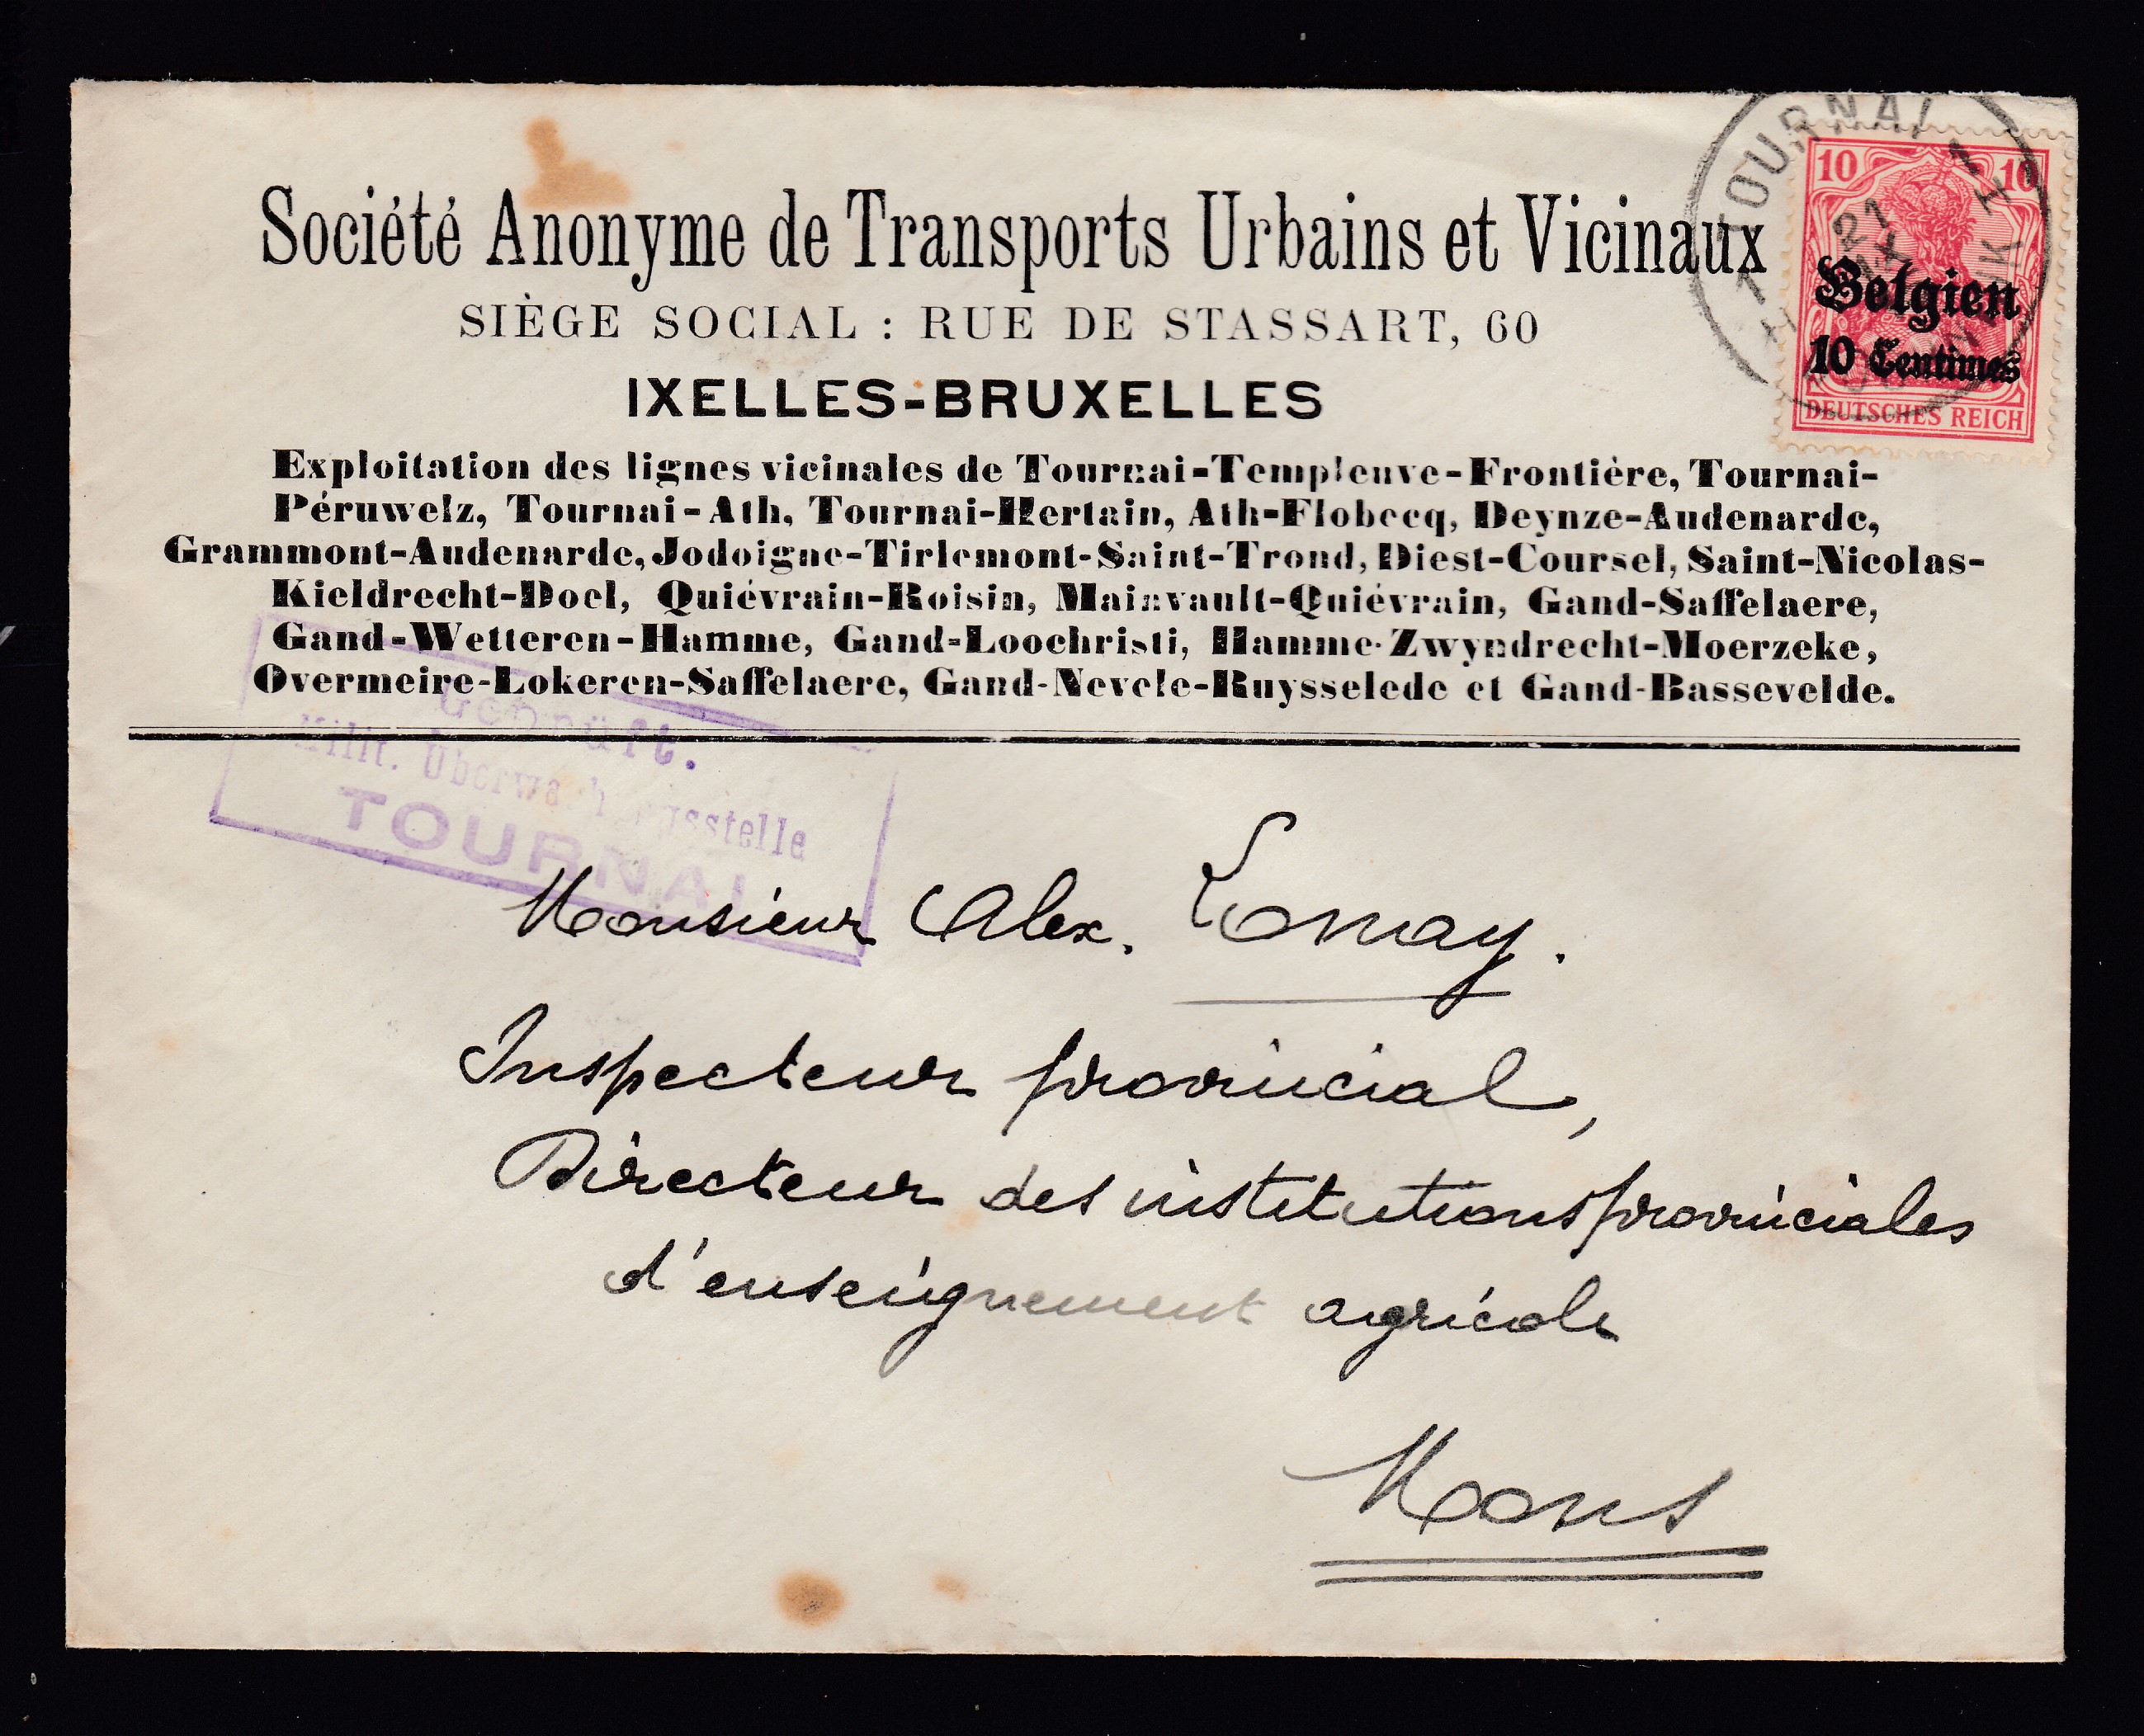 Société Anonyme de Transports Urbains et Vicinaux
SIÈGE SOCIAL : RUE DE STASSART, 60
IXELLES-BRUXELLES
Exploitation des lignes vicinales de Tournai-Templeuve-Frontière, Tournai-
Péruwelz, Tournai-Ath, Tournai-Hertain, Ath-Flobecq, Deynze-Audenarde,
Grammont-Audenarde, Jodoigne-Tirlemont-Saint-Trond, Diest-Coursel, Saint-Nicolas-
Kieldrecht-Doel, Quiévrain-Roisin, Mainvault-Quiévrain, Gand-Saffelaere,
Gand-Wetteren-Hamme, Gand-Loochristi, Hamme-Zwyndrecht-Moerzeke,
Overmeire-Lokeren-Saffelaere, Gand-Nevele-Ruysselede et Gand-Bassevelde.
TOURNAI
21
IX
10 10
Belgien
10 Centimes
DEUTSCHES REICH
Geprüft.
Milit. Überwachungsstelle
TOURNAI
Monsieur Alex. Lonay.
Inspecteur provincial,
Directeur des institutions provinciales
d'enseignement agricole
Mons